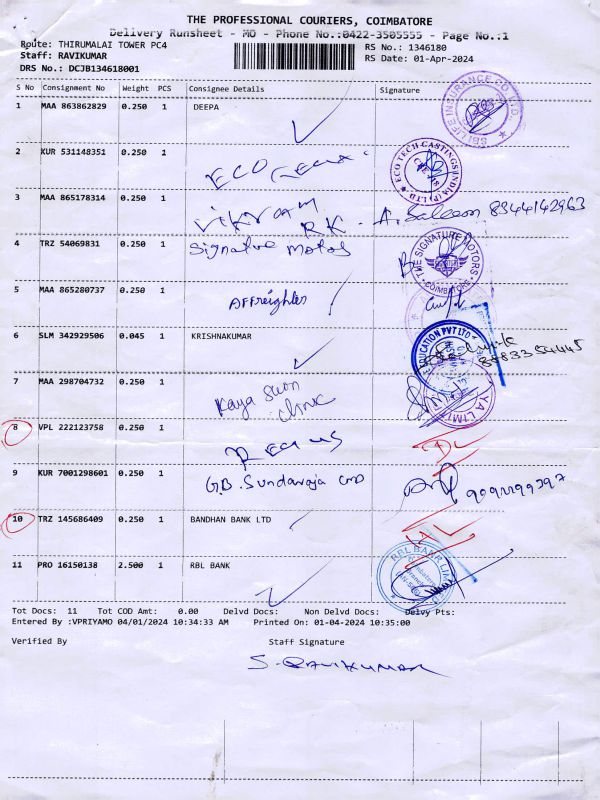 THE PROFESSIONAL COURIERS, COIMBATORE
Delivery Runsheet - MO - Phone No.:0422-3505555 - Page No.:1
Route: THIRUMALAI TOWER PC4 RS No.: 1346180
Staff: RAVIKUMAR RS Date: 01-Apr-2024
DRS No.: DCJB134618001
S No Consignment No Weight PCS Consignee Details Signature
1 MAA 863862829 0.250 1 DEEPA
SBI LIFE INSURANCE CO LTD.
2 KUR 531148351 0.250 1 ECO
ECO TECH CASTINGS INDIA (P) LTD
3 MAA 865178314 0.250 1 Vikram RK - A. Saleem 8344142963
4 TRZ 54069831 0.250 1 Signature Motors
THE SIGNATURE MOTORS COIMBATORE
5 MAA 865280737 0.250 1 AFFreighter
6 SLM 342929506 0.045 1 KRISHNAKUMAR
EDUCATION PVT LTD
7 MAA 298704732 0.250 1 Kaya Skin Clinic
KAYA LIMI
8 VPL 222123758 0.250 1
9 KUR 7001298601 0.250 1 G.B. Sundaraja
10 TRZ 145686409 0.250 1 BANDHAN BANK LTD
11 PRO 16150138 2.500 1 RBL BANK
RBL BANK LIMITED
Tot Docs: 11 Tot COD Amt: 0.00 Delvd Docs: Non Delvd Docs: Delvy Pts:
Entered By :VPRIYAMO 04/01/2024 10:34:33 AM Printed On: 01-04-2024 10:35:00
Verified By Staff Signature
S. RAVIKUMAR